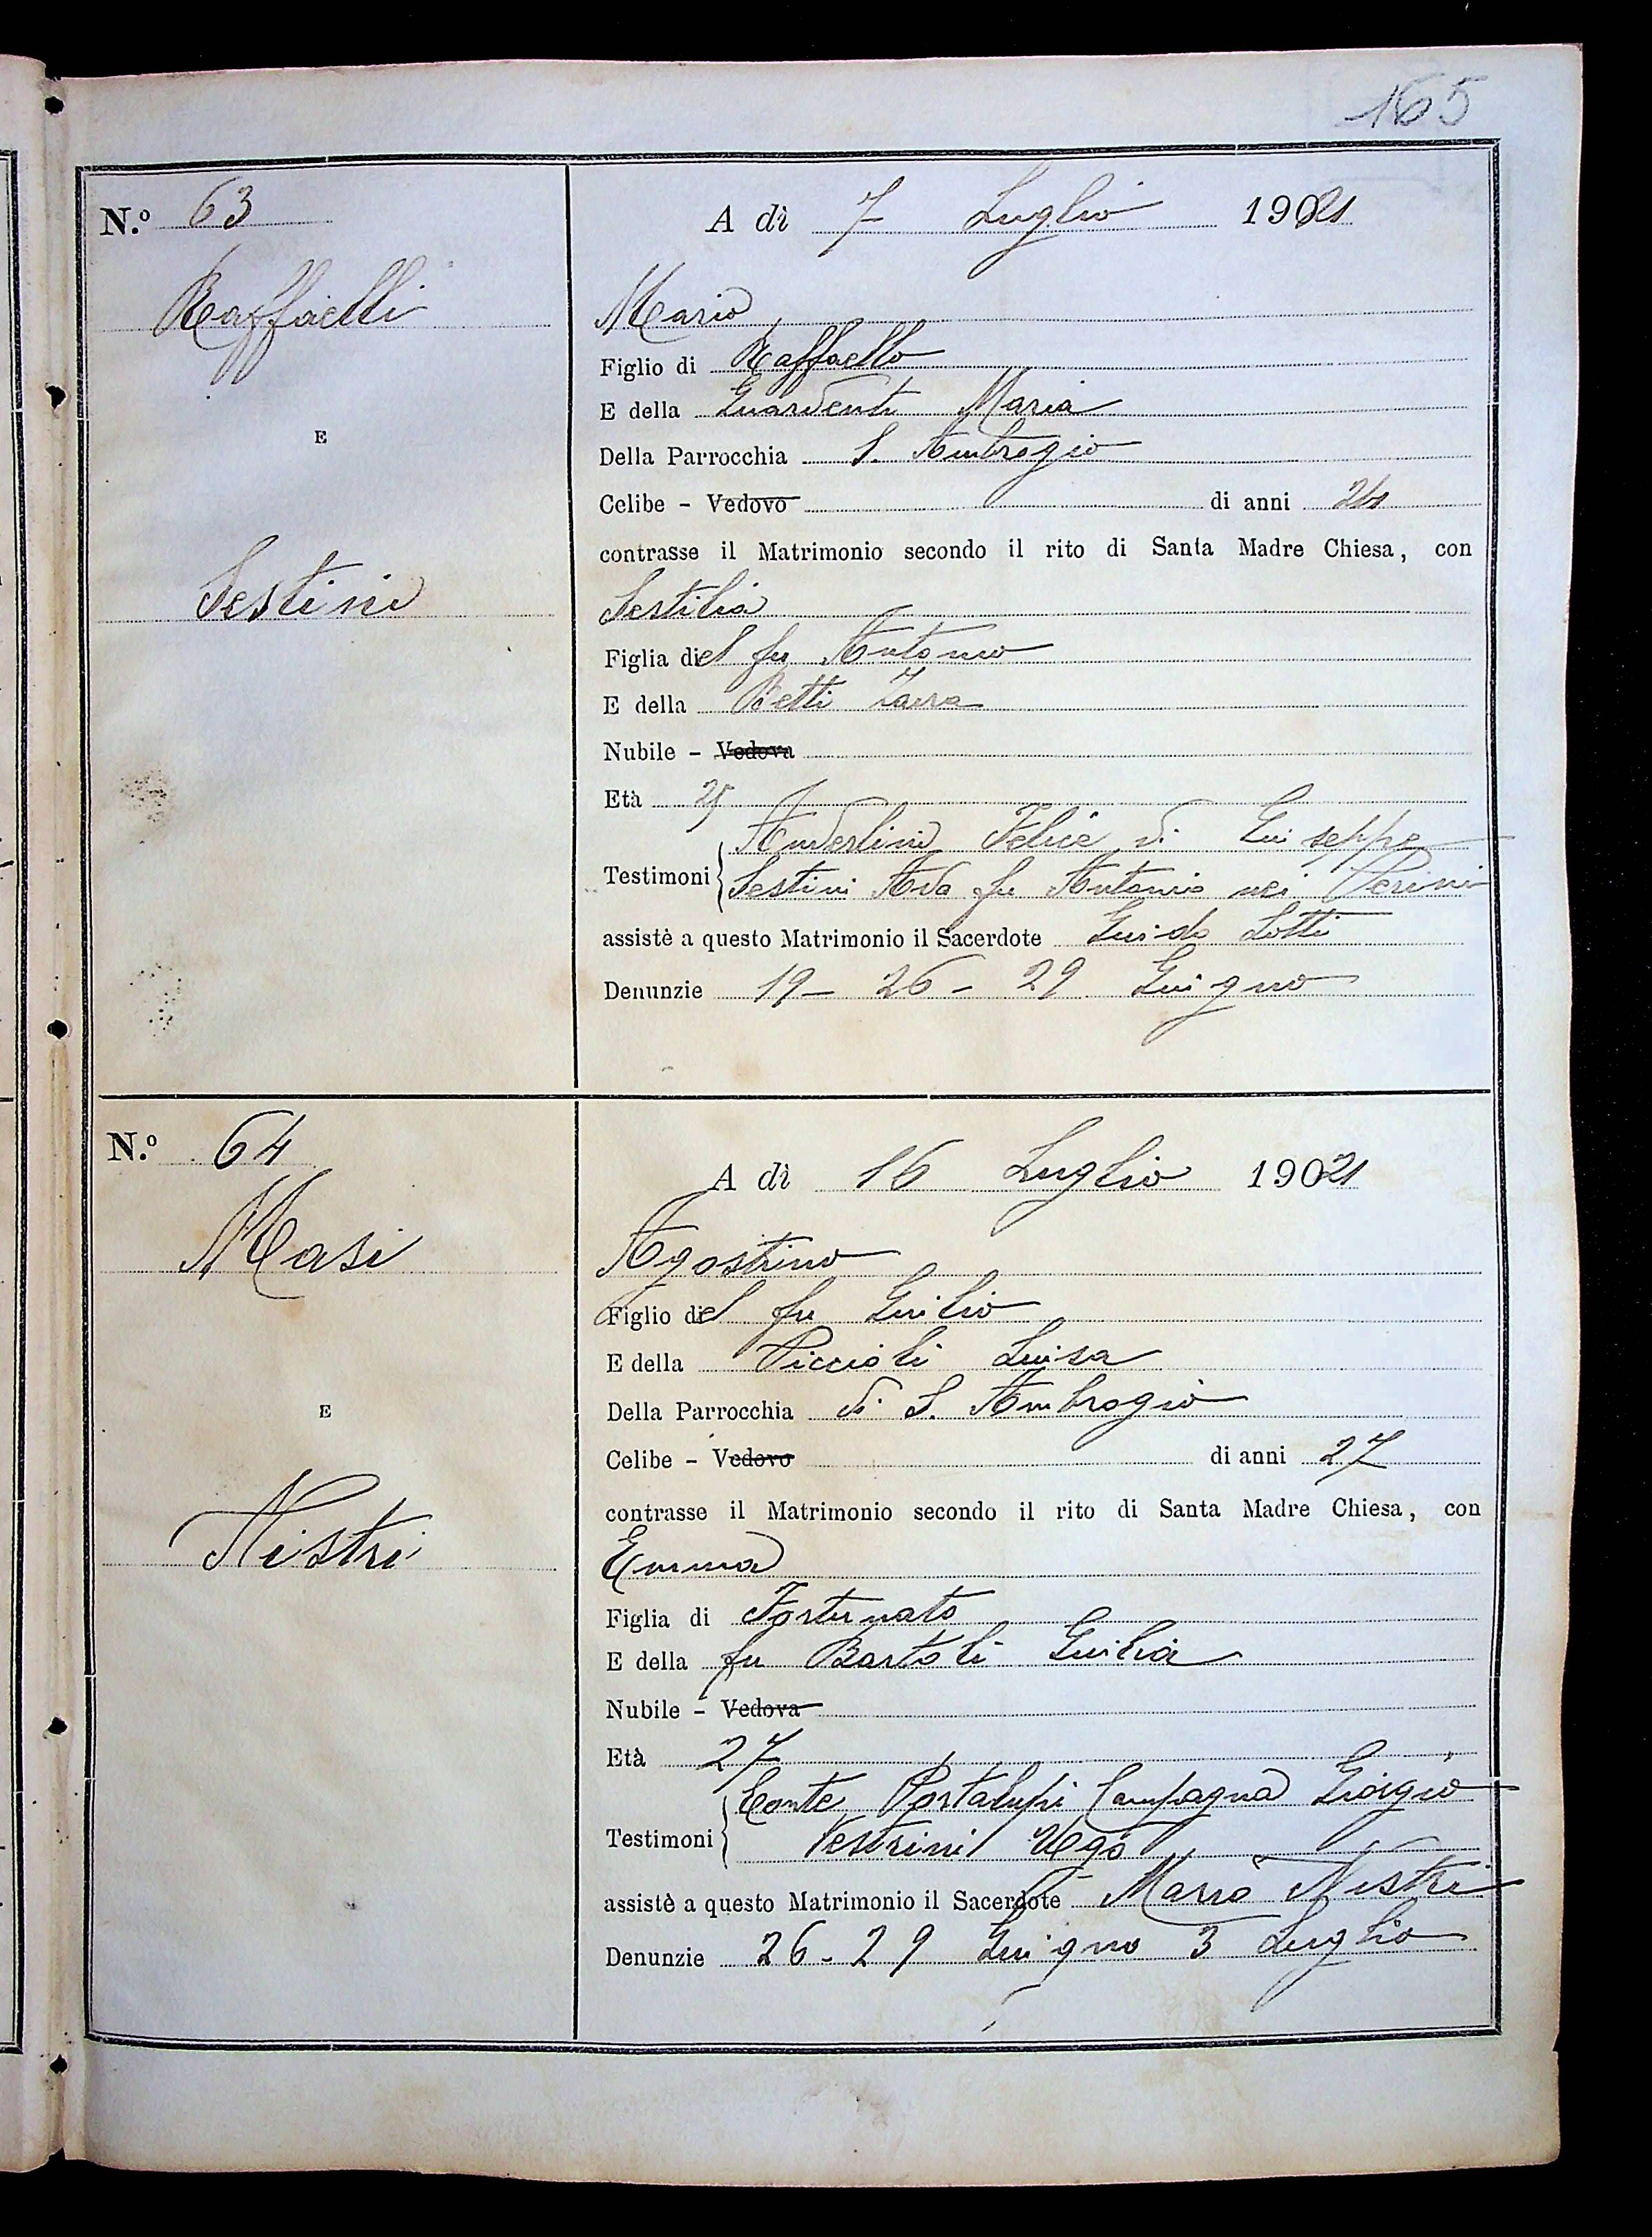 165
N.º 63
A dì 7 Luglio 1921
Raffaelli
Mario
Figlio di Raffaello
E della Guardenti Maria
E
Della Parrocchia S. Ambrogio
Celibe - Vedovo di anni
contrasse il Matrimonio secondo il rito di Santa Madre Chiesa, con
Sestini
Sestilia
Figlia del fu Antonio
E della Betti Zaira
Nubile - Vedova
Età 25
Testimoni { Anderlini Felice di Giuseppe
Sestini Ada fu Antonio nei Perini
assistè a questo Matrimonio il Sacerdote Guido Lotti
Denunzie 19 - 26 - 29 Giugno
N.º 64
A dì 16 Luglio 1921
Masi
Agostino
Figlio del fu Giulio
E della Piccioli Luisa
E
Della Parrocchia di S. Ambrogio
Celibe - Vedovo di anni 27
contrasse il Matrimonio secondo il rito di Santa Madre Chiesa, con
Nistri
Emma
Figlia di Fortunato
E della fu Bartoli Giulia
Nubile - Vedova
Età 27
Testimoni { Conte Portalupi Campagna Giorgio
Vestrini Ugo
assistè a questo Matrimonio il Sacerdote Mario Nistri
Denunzie 26 - 29 Giugno 3 Luglio